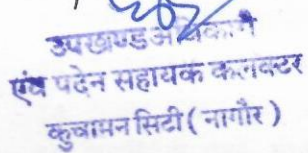 उपखण्ड अधिकारी
एवं पदेन सहायक कलक्टर
कुचामन सिटी ( नागौर )